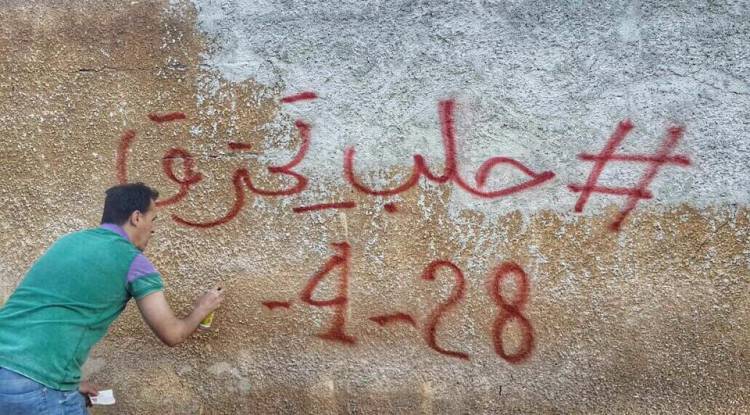 #حلب_تحترق
28-4-